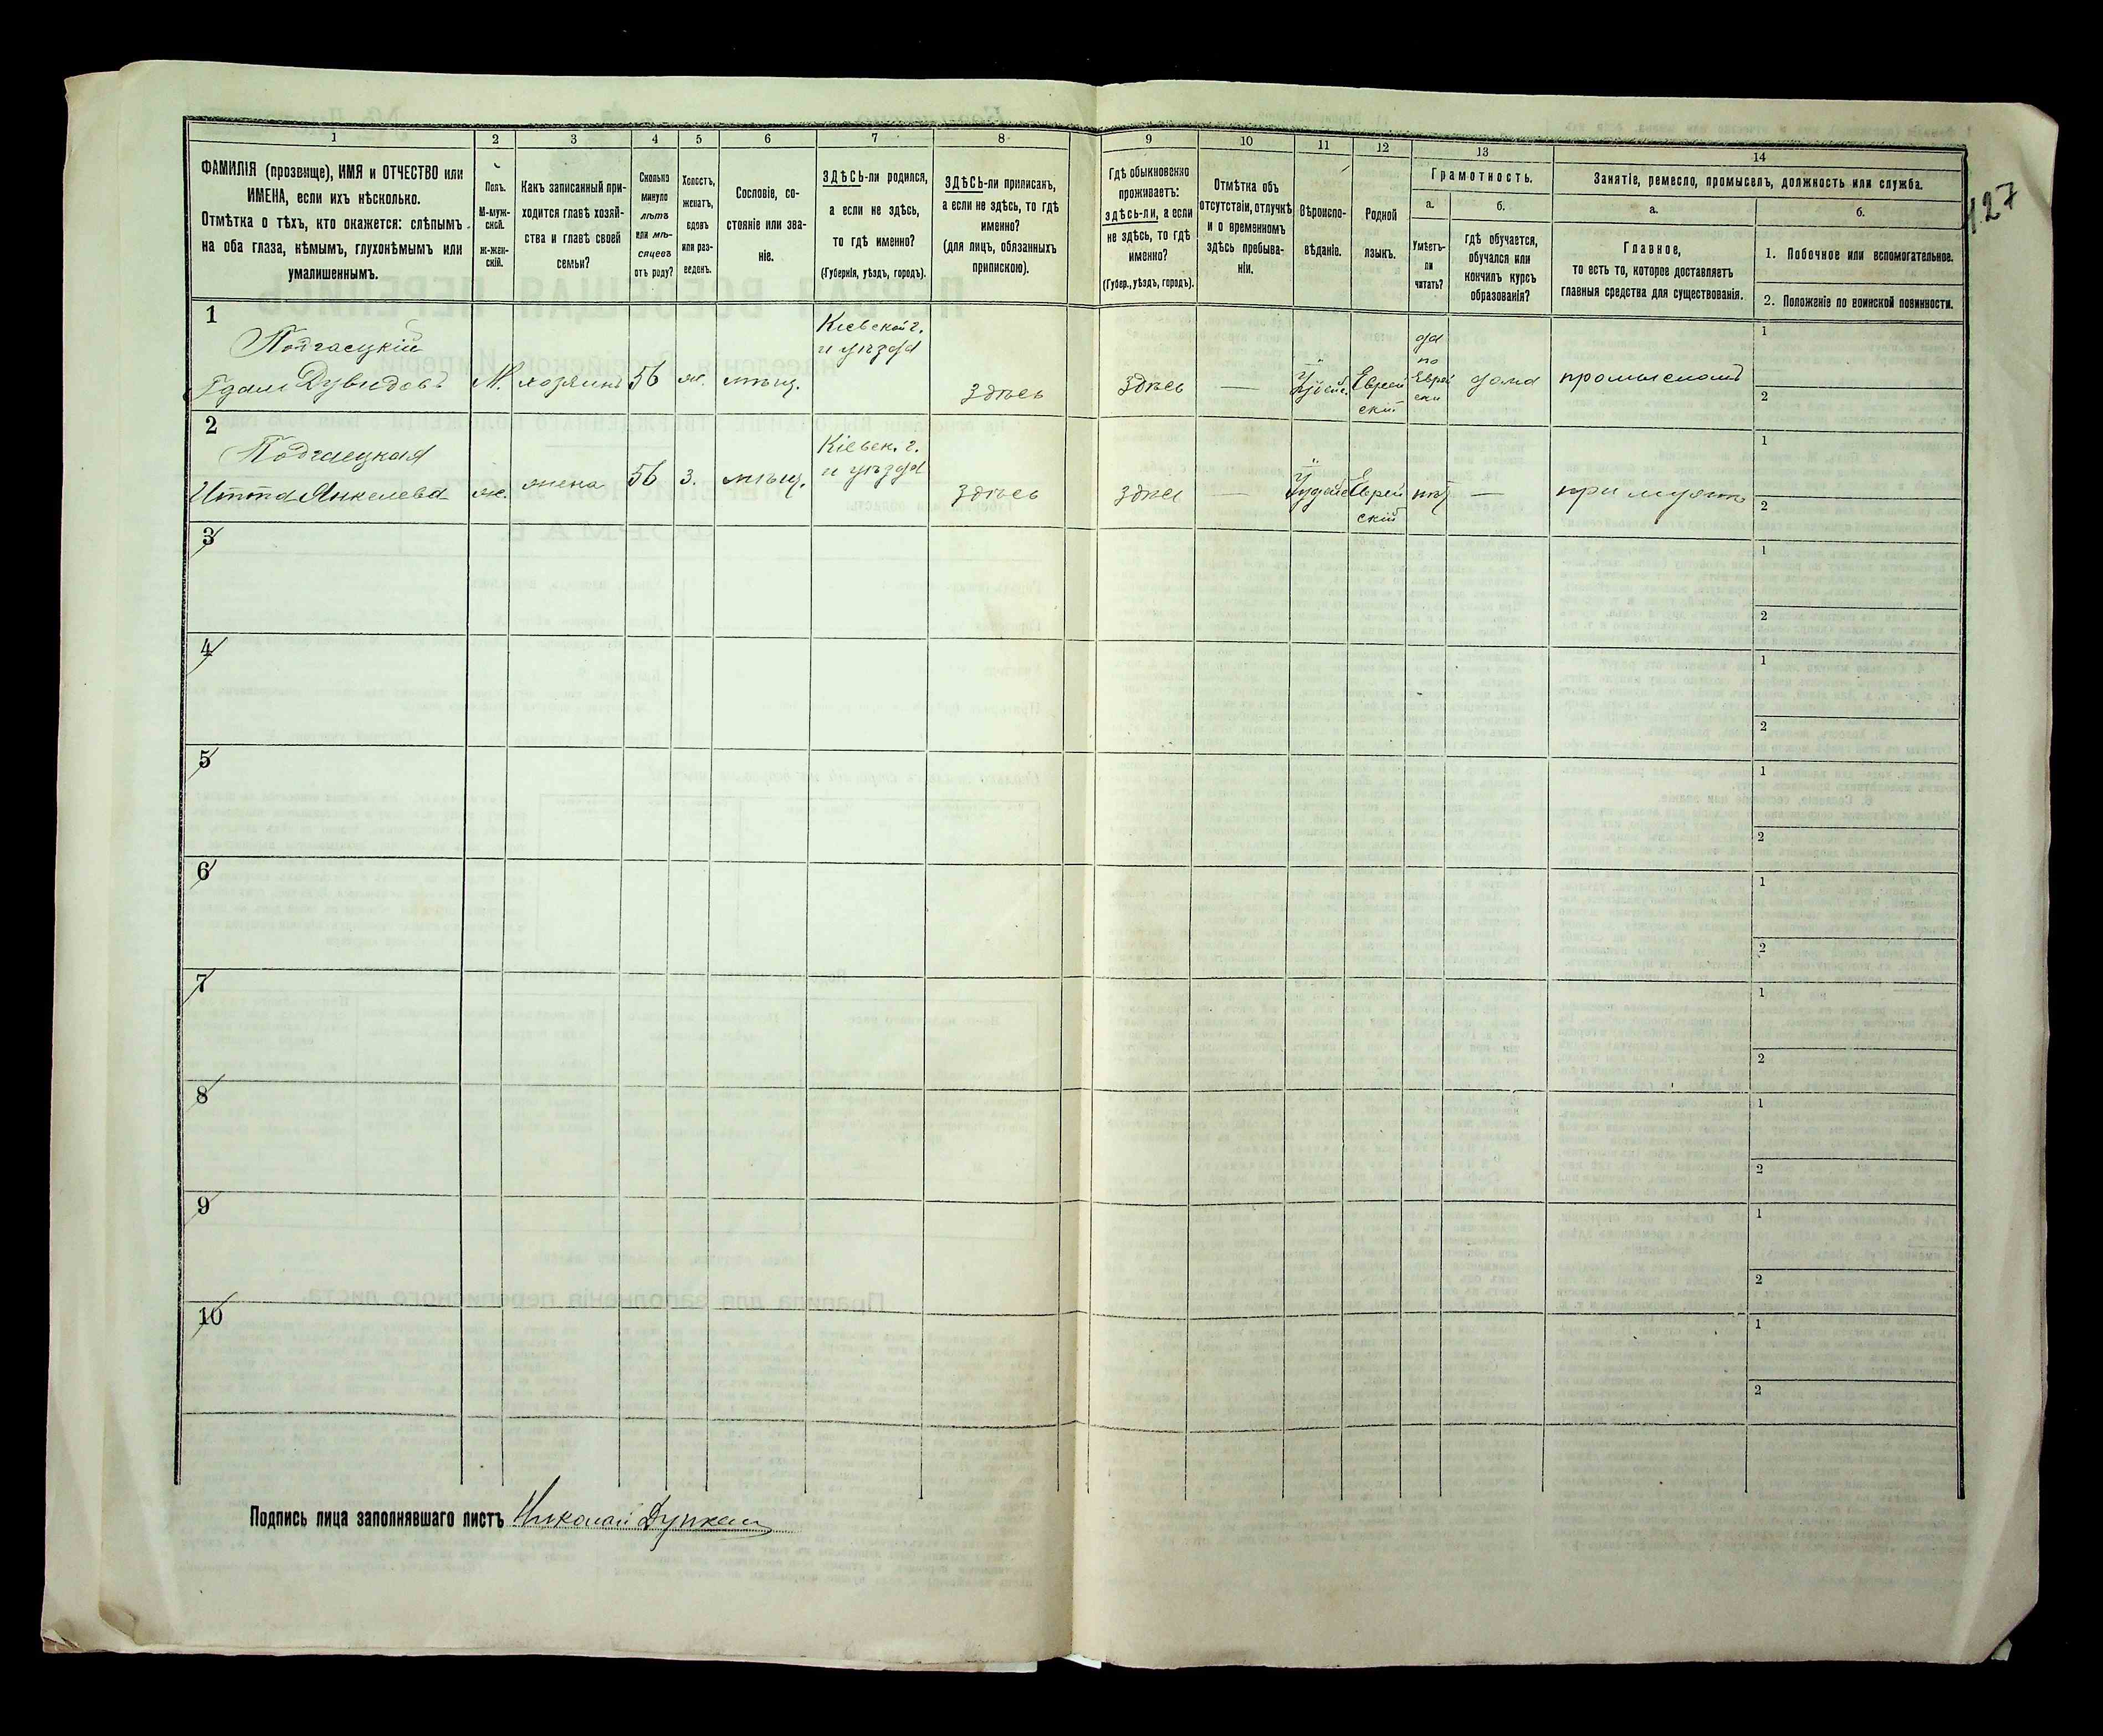 127
1
2
3
4
5
6
7
8
9
10
11
12
13
14
ФАМИЛІЯ (прозвище), ИМЯ и ОТЧЕСТВО или
ИМЕНА, если ихъ нѣсколько.
Отмѣтка о тѣхъ, кто окажется: слѣпымъ
на оба глаза, нѣмымъ, глухонѣмымъ или
умалишеннымъ.
Полъ.
М-муж-
ской.
Ж-жен-
скій.
Какъ записанный при-
ходится главѣ хозяй-
ства и главѣ своей
семьи?
Сколько
минуло
лѣтъ
или мѣ-
сяцевъ
отъ роду?
Холостъ,
женатъ,
вдовъ
или раз-
веденъ.
Сословіе, со-
стояніе или зва-
ніе.
ЗДѢСЬ-ли родился,
а если не здѣсь,
то гдѣ именно?
(Губернія, уѣздъ, городъ).
ЗДѢСЬ-ли приписанъ,
а если не здѣсь, то гдѣ
именно?
(для лицъ, обязанныхъ
припискою).
Гдѣ обыкновенно
проживаетъ:
здѣсь-ли, а если
не здѣсь, то гдѣ
именно?
(Губер., уѣздъ, городъ).
Отмѣтка объ
отсутствіи, отлучкѣ
и о временномъ
здѣсь пребыва-
ніи.
Вѣроиспо-
вѣданіе.
Родной
языкъ.
Грамотность.
а.
Умѣетъ-
ли
читать?
б.
гдѣ обучается,
обучался или
кончилъ курсъ
образованія?
Занятіе, ремесло, промыселъ, должность или служба.
а.
Главное,
то есть то, которое доставляетъ
главныя средства для существованія.
б.
1. Побочное или вспомогательное.
2. Положеніе по воинской повинности.
1
Подгаецкій
Гдаль Дувидовъ
М.
хозяинъ
56
ж.
мѣщ.
Кіевской г.
и уѣзда
Здѣсь
Здѣсь
—
Іудейс.
Еврей
скій
да
по
Еврей
ски
дома
промысломъ
1
2
2
Подгаецкая
Итта Янкелева
ж.
жена
56
З.
мѣщ.
Кіевск. г.
и уѣзда
Здѣсь
Здѣсь
—
Іудейс
Еврей
скій
нѣт
—
при мужѣ
1
2
3
1
2
4
1
2
5
1
2
6
1
2
7
1
2
8
1
2
9
1
2
10
1
2
Подпись лица заполнявшаго листъ Николай